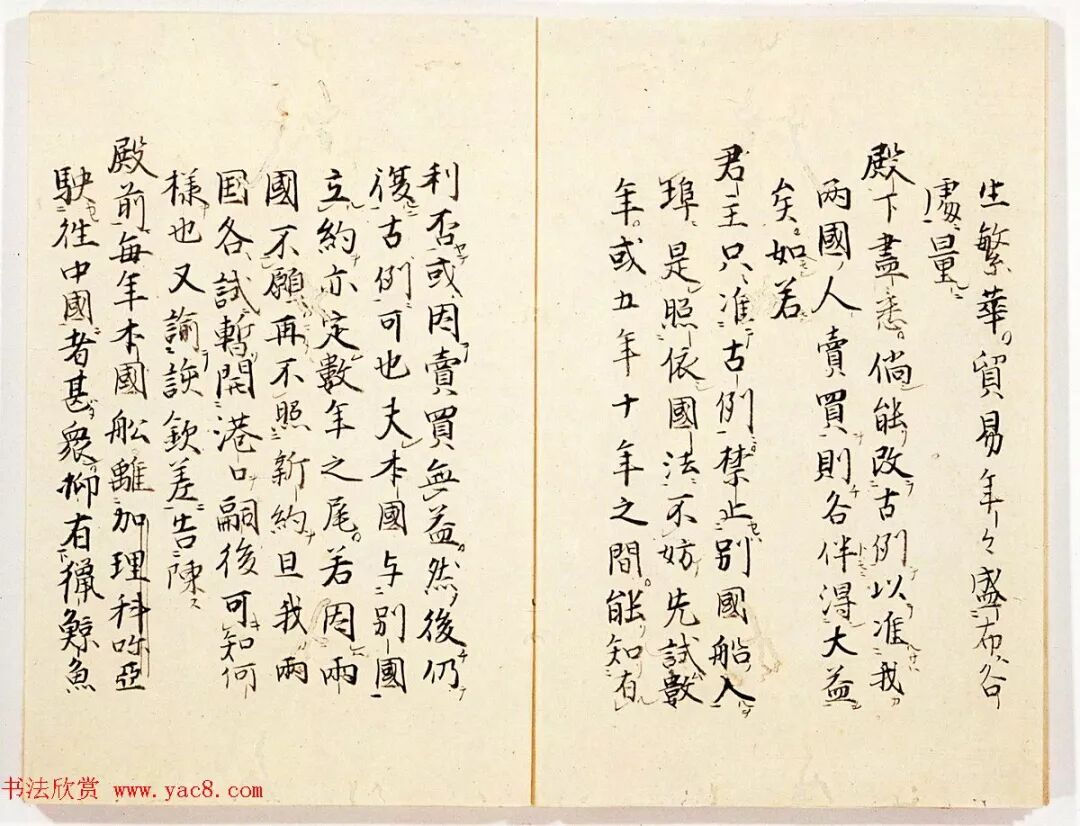 生繁華貿易年々盛布谷
慮量
殿下盡悉倘能改古例以准我
两國人賣買則各伴得大益
矣如若
君主只准古例禁止别國船入
埠是照依國法不妨先試數
年或五年十年之間能知有
利否或因賣買無益然後仍
復古例可也夫本國与别國
立約亦定數年之尾若因兩
國不願再不照新約且我兩
国各試暫開港口嗣後可知何
樣也又諭該欽差告陳
殿前每年本國舩離加理科尔亞
駛徃中國者甚衆抑有獵鯨魚
书法欣赏 www.yac8.com